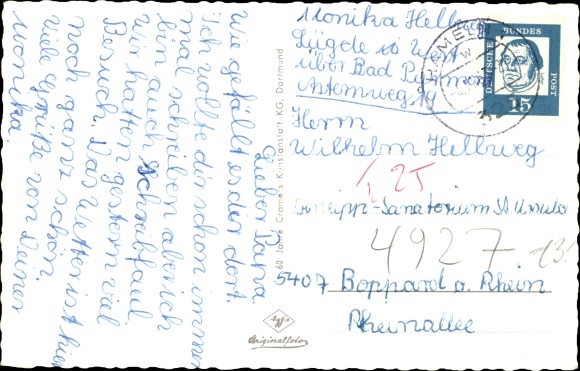 Lieber Papa
wie gefällt es dir dort.
Ich wollte dir schon immer
mal schreiben aber ich
bin auch schreibfaul
wir hatten gestern viel
Besuch. Das Wetter ist hier
noch ganz schön.
Viele Grüße von Deiner
Monika
60 Jahre Cramers Kunstanstalt KG, Dortmund
Agfa
Originalfoto
Monika Hellweg
Lügde üb West
über Bad Pyrmont
Asternweg
DEUTSCHE BUNDESPOST
15
32
Herrn
Wilhelm Hellweg
1,25
Kneipp-Sanatorium
4927
13
5407 Boppard a. Rhein
Rheinallee